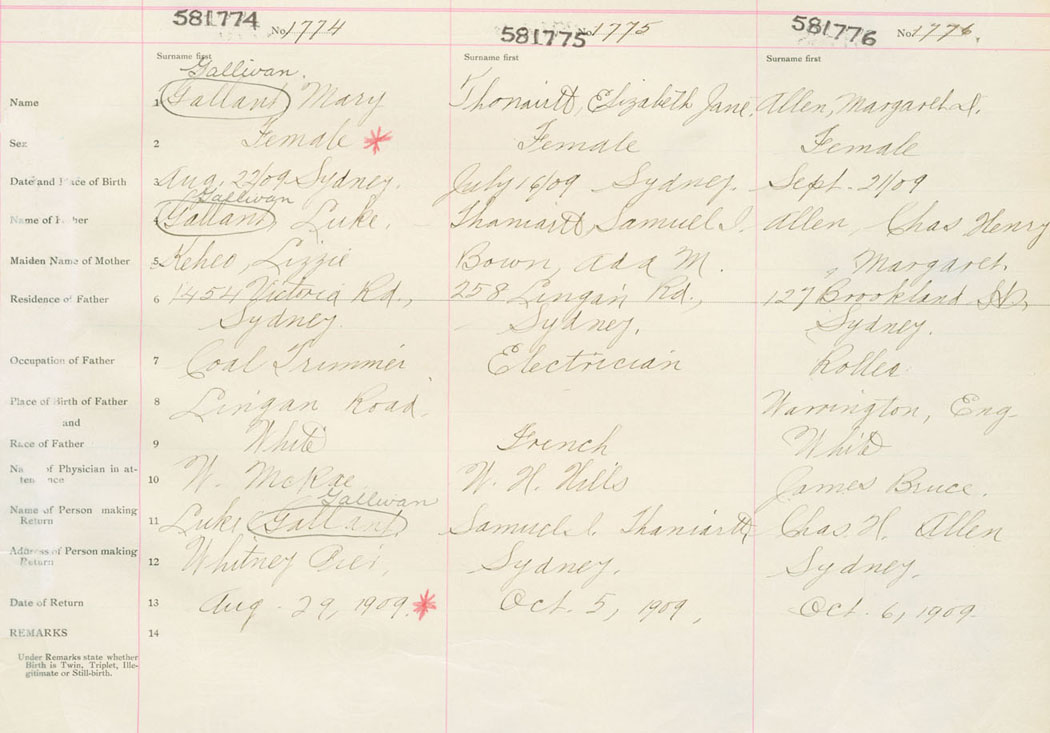 581774 No. 1774 581775 No. 1775 581776 No. 1776
Surname first Surname first Surname first
Gallivan
Name 1 Gallant Mary Thaniartt, Elizabeth Jane Allen, Margaret
Sex 2 Female Female Female
Date and Place of Birth 3 Aug. 22/09 Sydney. July 16/09 Sydney. Sept. 21/09
Gallivan
Name of Father 4 Gallant Luke. Thaniartt, Samuel J. Allen, Chas Henry
Maiden Name of Mother 5 Keheo, Lizzie Bown, Ada M. , Margaret.
Residence of Father 6 1454 Victoria Rd., 258 Lingan Rd., 127 Brookland St.,
Sydney. Sydney. Sydney.
Occupation of Father 7 Coal Trimmer Electrician Roller
Place of Birth of Father 8 Lingan Road. Warrington, Eng.
and
Race of Father 9 White French White
Na of Physician in at- 10 W. McRae W. H. Hills James Bruce.
ten nce
Gallivan
Name of Person making 11 Luke Gallant Samuel J. Thaniartt Chas. H. Allen
Return
Address of Person making 12 Whitney Pier, Sydney. Sydney.
Return
Date of Return 13 Aug. 29, 1909. Oct. 5, 1909, Oct. 6, 1909
REMARKS 14
Under Remarks state whether
Birth is Twin, Triplet, Ille-
gitimate or Still-birth.